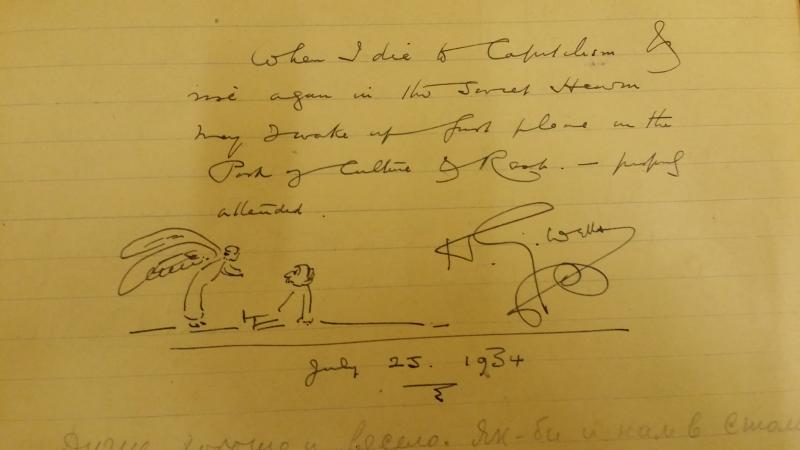 When I die to Capitalism &
rise again in the Soviet Heaven
may I wake up first please in the
Park of Culture & Rest. — properly
attended.
H. G. Wells
July 25. 1934
хорошо и весело. Як-би и нам в